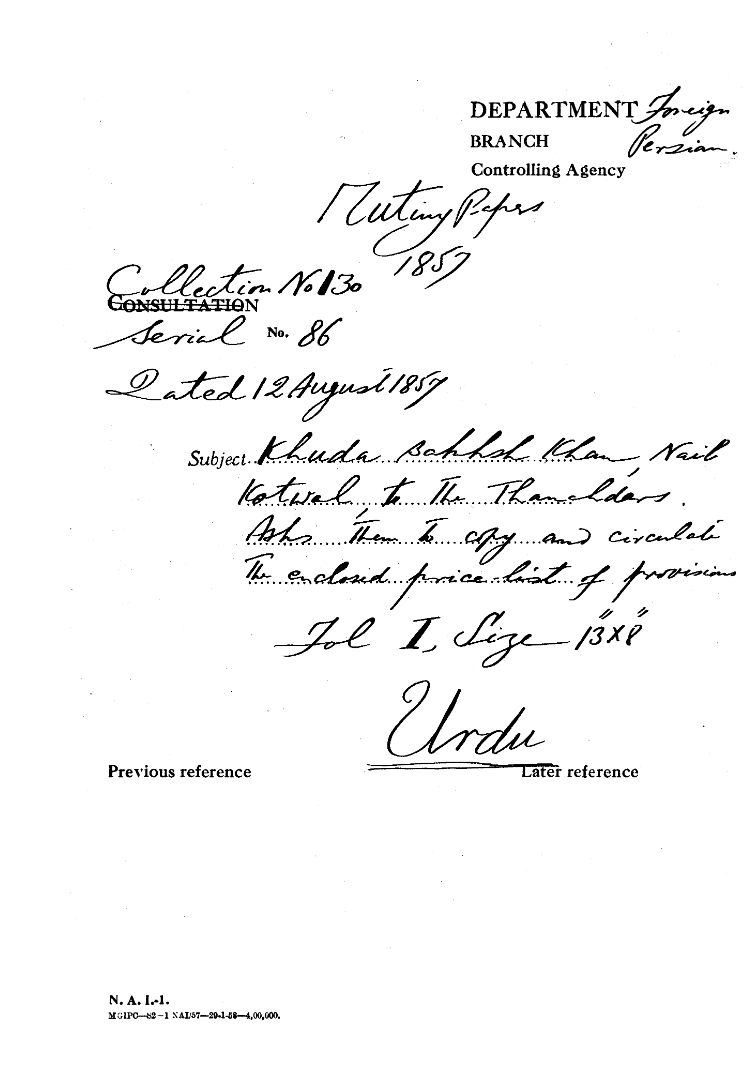 DEPARTMENT Foreign
BRANCH Persian.
Controlling Agency
Mutiny Papers
1857
Collection No 130
CONSULTATION
Serial No. 86
Dated 12 August 1857
Subject Khuda Bakhsh Khan, Naib
Kotwal, to the Thanehdars.
Asks them to copy and circulate
the enclosed price-list of provisions
Fol I, Size 13"X8"
Urdu
Previous reference Later reference
N. A. I.-1.
MGIPC—S2—1 NAI/57—29-1-58—4,00,000.